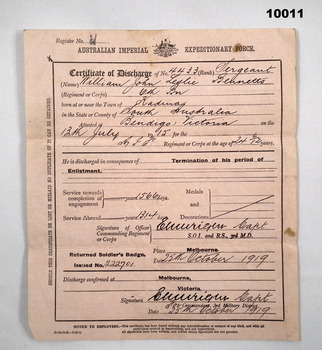 10011
Register No.
AUSTRALIAN IMPERIAL EXPEDITIONARY FORCE.
Certificate of Discharge of No. 4433 (Rank) Sergeant
(Name) William John Leslie
(Regiment or Corps) 6th Bn
born at or near the Town of Kadina
in the State or County of South Australia
Attested at Bendigo, Victoria on the
12th July 1915 for the
A.I.F. Regiment or Corps at the age of years.
He is discharged in consequence of Termination of his period of
Enlistment.
Service towards completion of engagement years 1566 days.
Medals and Decorations
Service Abroad years 1314 days.
Signature of Officer Commanding Regiment or Corps Capt
S.O.I. and R.S., 3rd M.D.
Returned Soldier's Badge.
Issued No.
Place Melbourne.
Date 25th October 1919
Discharge confirmed at Melbourne,
Victoria.
Signature Capt
Commandant, 3rd Military District
Date 25th October 1919
NOTICE TO EMPLOYERS.